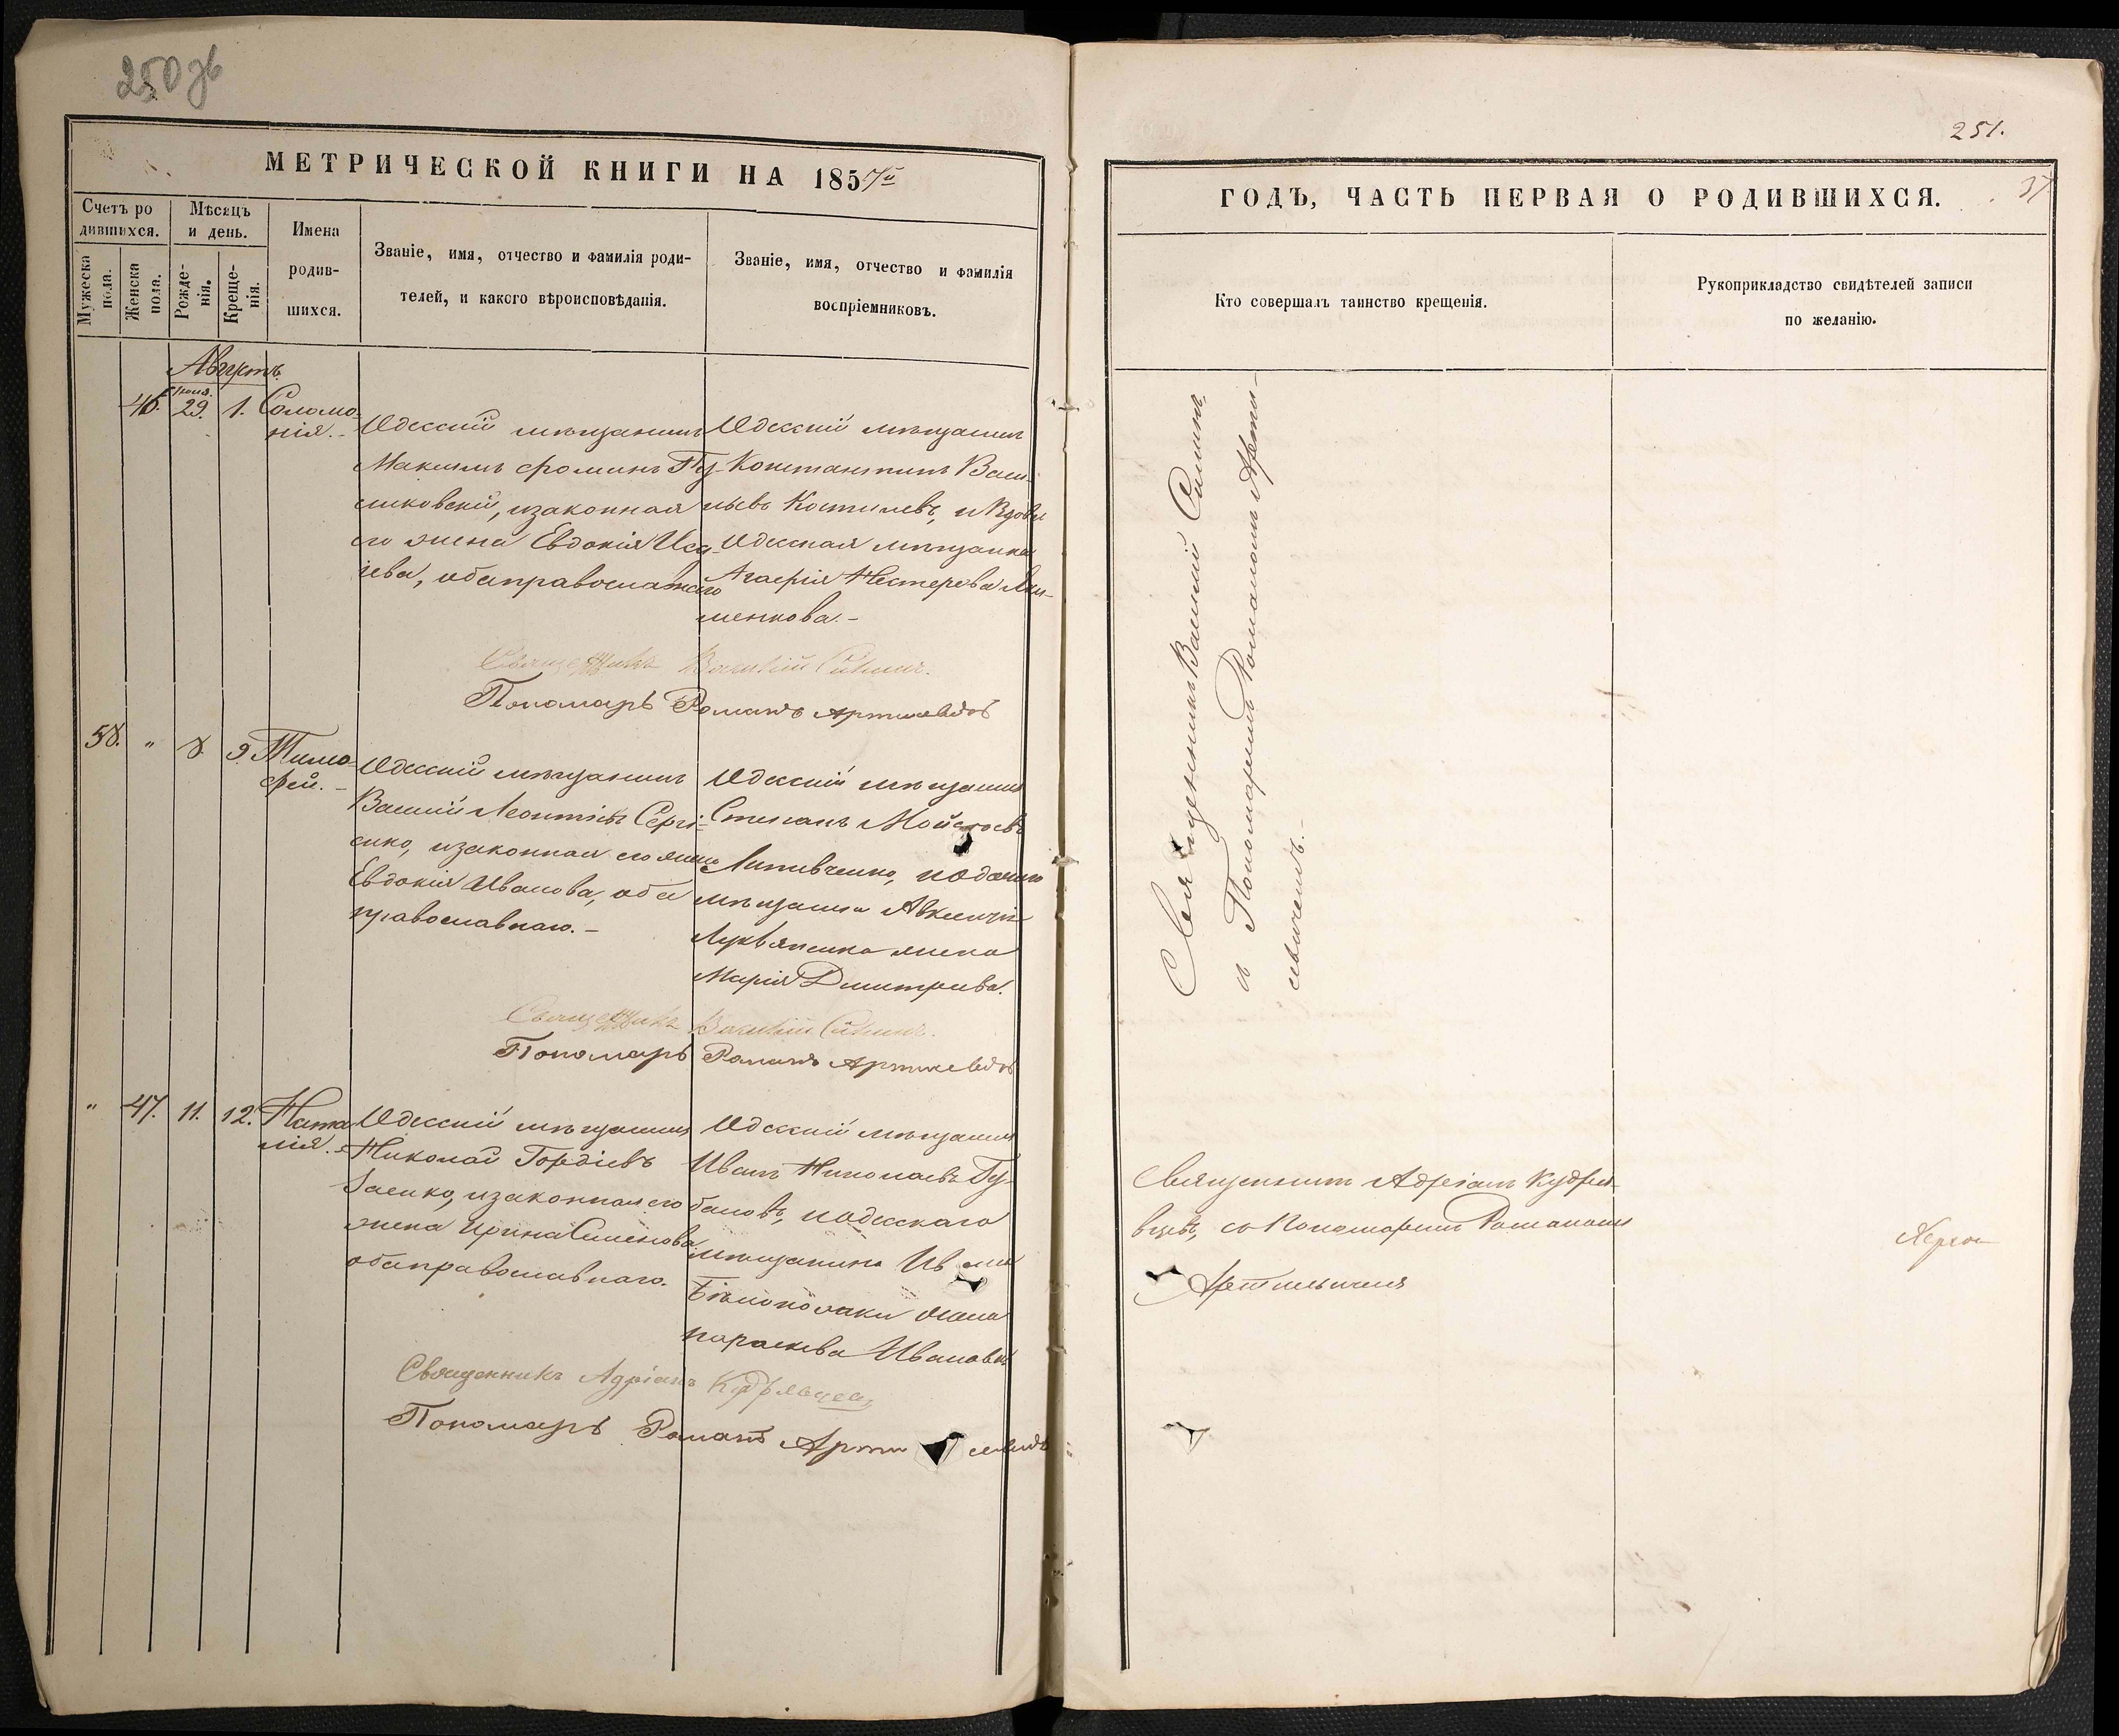 250 зв
МЕТРИЧЕСКОЙ КНИГИ НА 1857й
Счетъ ро
дившихся.
Мѣсяцъ
и день.
Мужеска
пола.
Женска
пола.
Рожде-
нія.
Креще-
нія.
Имена
родив-
шихся.
Званіе, имя, отчество и фамилія роди-
телей, и какого вѣроисповѣданія.
Званіе, имя, отчество и фамилія
воспріемниковъ.
Августъ
46. 29. 1. Соломо-
нія.-
Одесскій мѣщанинъ
Максимъ Фоминъ
изаконная
его жена Евдокія
обаправославнаго
Одесскій мѣщанинъ
Константинъ Васи-
льевъ Костилевъ, и Вдова
Одесская мѣщанка
Агафія Нестерова
менкова.-
Священникъ Василій
Пономарь Романъ Артишевичъ
58. " 8 9. Тимо-
фей.-
Одесскій мѣщанинъ
Василій Леонтіевъ Сергі-
енко, изаконная его жена
Евдокія Иванова, оба
православнаго.-
Одесскій мѣщанинъ
Степанъ Мойсеевъ
Литвиченко, иодесскаго
мѣщанина Авксентія
Лукьяненка жена
Марія Дмитріева.
Священникъ Василій
Пономарь Романъ Артишевичъ
" 47. 11. 12. Ната
лія.-
Одесскій мѣщанинъ
Николай Гордіевъ
Заенко, изаконная его
жена Ирина Семенова
обаправославнаго.
Одесскій мѣщанинъ
Иванъ Николаевъ Гу-
бановъ, иодесскаго
мѣщанина
Бѣлополаки жена
параскева Иванова
Священникъ Адріанъ Кудрявцевъ
Пономарь Романъ
251.
37
ГОДЪ, ЧАСТЬ ПЕРВАЯ О РОДИВШИХСЯ.
Кто совершалъ таинство крещенія.
Рукоприкладство свидѣтелей записи
по желанію.
Священникъ Василій
и Пономаремъ Романомъ Арти-
шевичемъ.-
Священникъ Адріанъ Кудря-
вцевъ, съ Пономаремъ Романомъ
Артишевичемъ